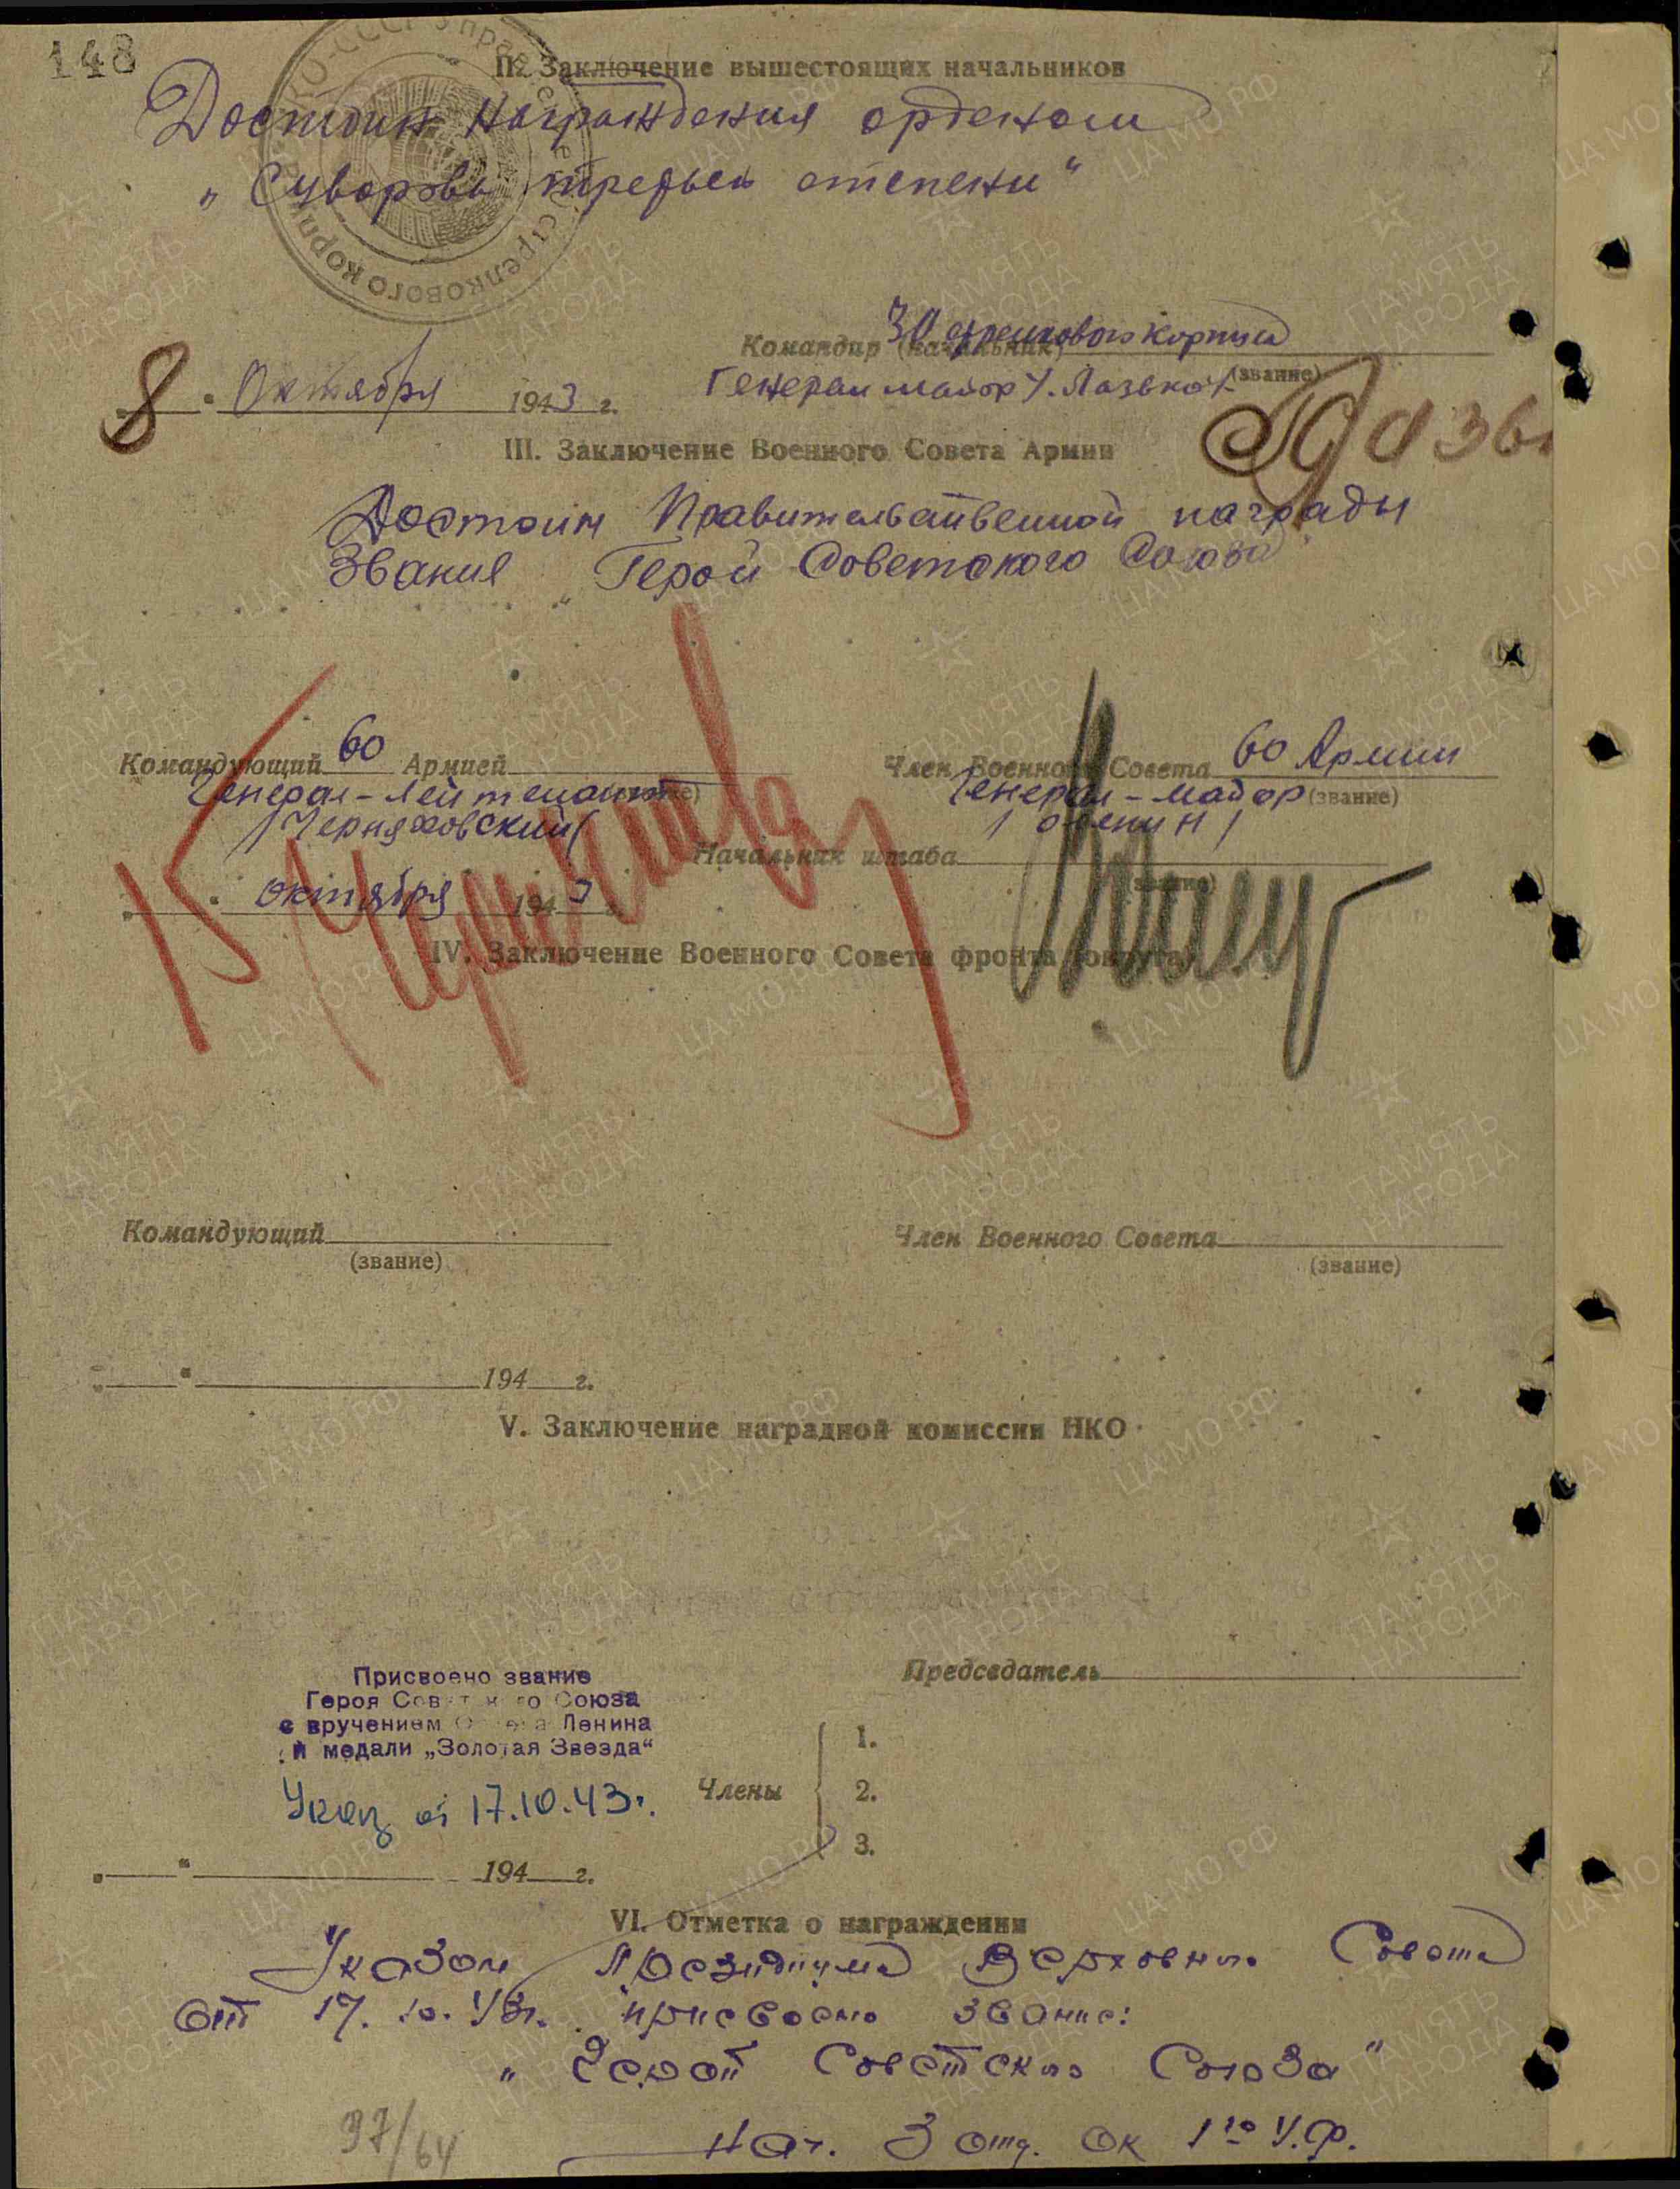 148
II. Заключение вышестоящих начальников
Достоин награждения орденом
„Суворова третьей степени“
стрелкового корпуса
Командир (начальник) 30 стрелкового корпуса
(звание)
Генерал майор /. Лазько /
8 " Октября 1943 г.
III. Заключение Военного Совета Армии
Достоин Правительственной награды
Звания „Герой Советского Союза"
Командующий 60 Армией
Член Военного Совета 60 Армии
Генерал-лейтенант (звание)
Генерал-майор (звание)
/Черняховский/
/Оленин/
Начальник штаба
(звание)
" октября 1943 г.
IV. Заключение Военного Совета фронта (округа)
Командующий
(звание)
Член Военного Совета
(звание)
" " 194 г.
V. Заключение наградной комиссии НКО
Председатель
Присвоено звание
Героя Советского Союза
с вручением Ордена Ленина
и медали „Золотая Звезда“
Указ от 17.10.43г.
Члены
1.
2.
3.
" " 194 г.
VI. Отметка о награждении
Указом Президиума Верховного Совета
от 17.10.43г. присвоено звание:
„Герой Советского Союза"
Нач. 3 отд. ОК 1го У.Ф.
37/64
ПАМЯТЬ НАРОДА
ЦА МО РФ